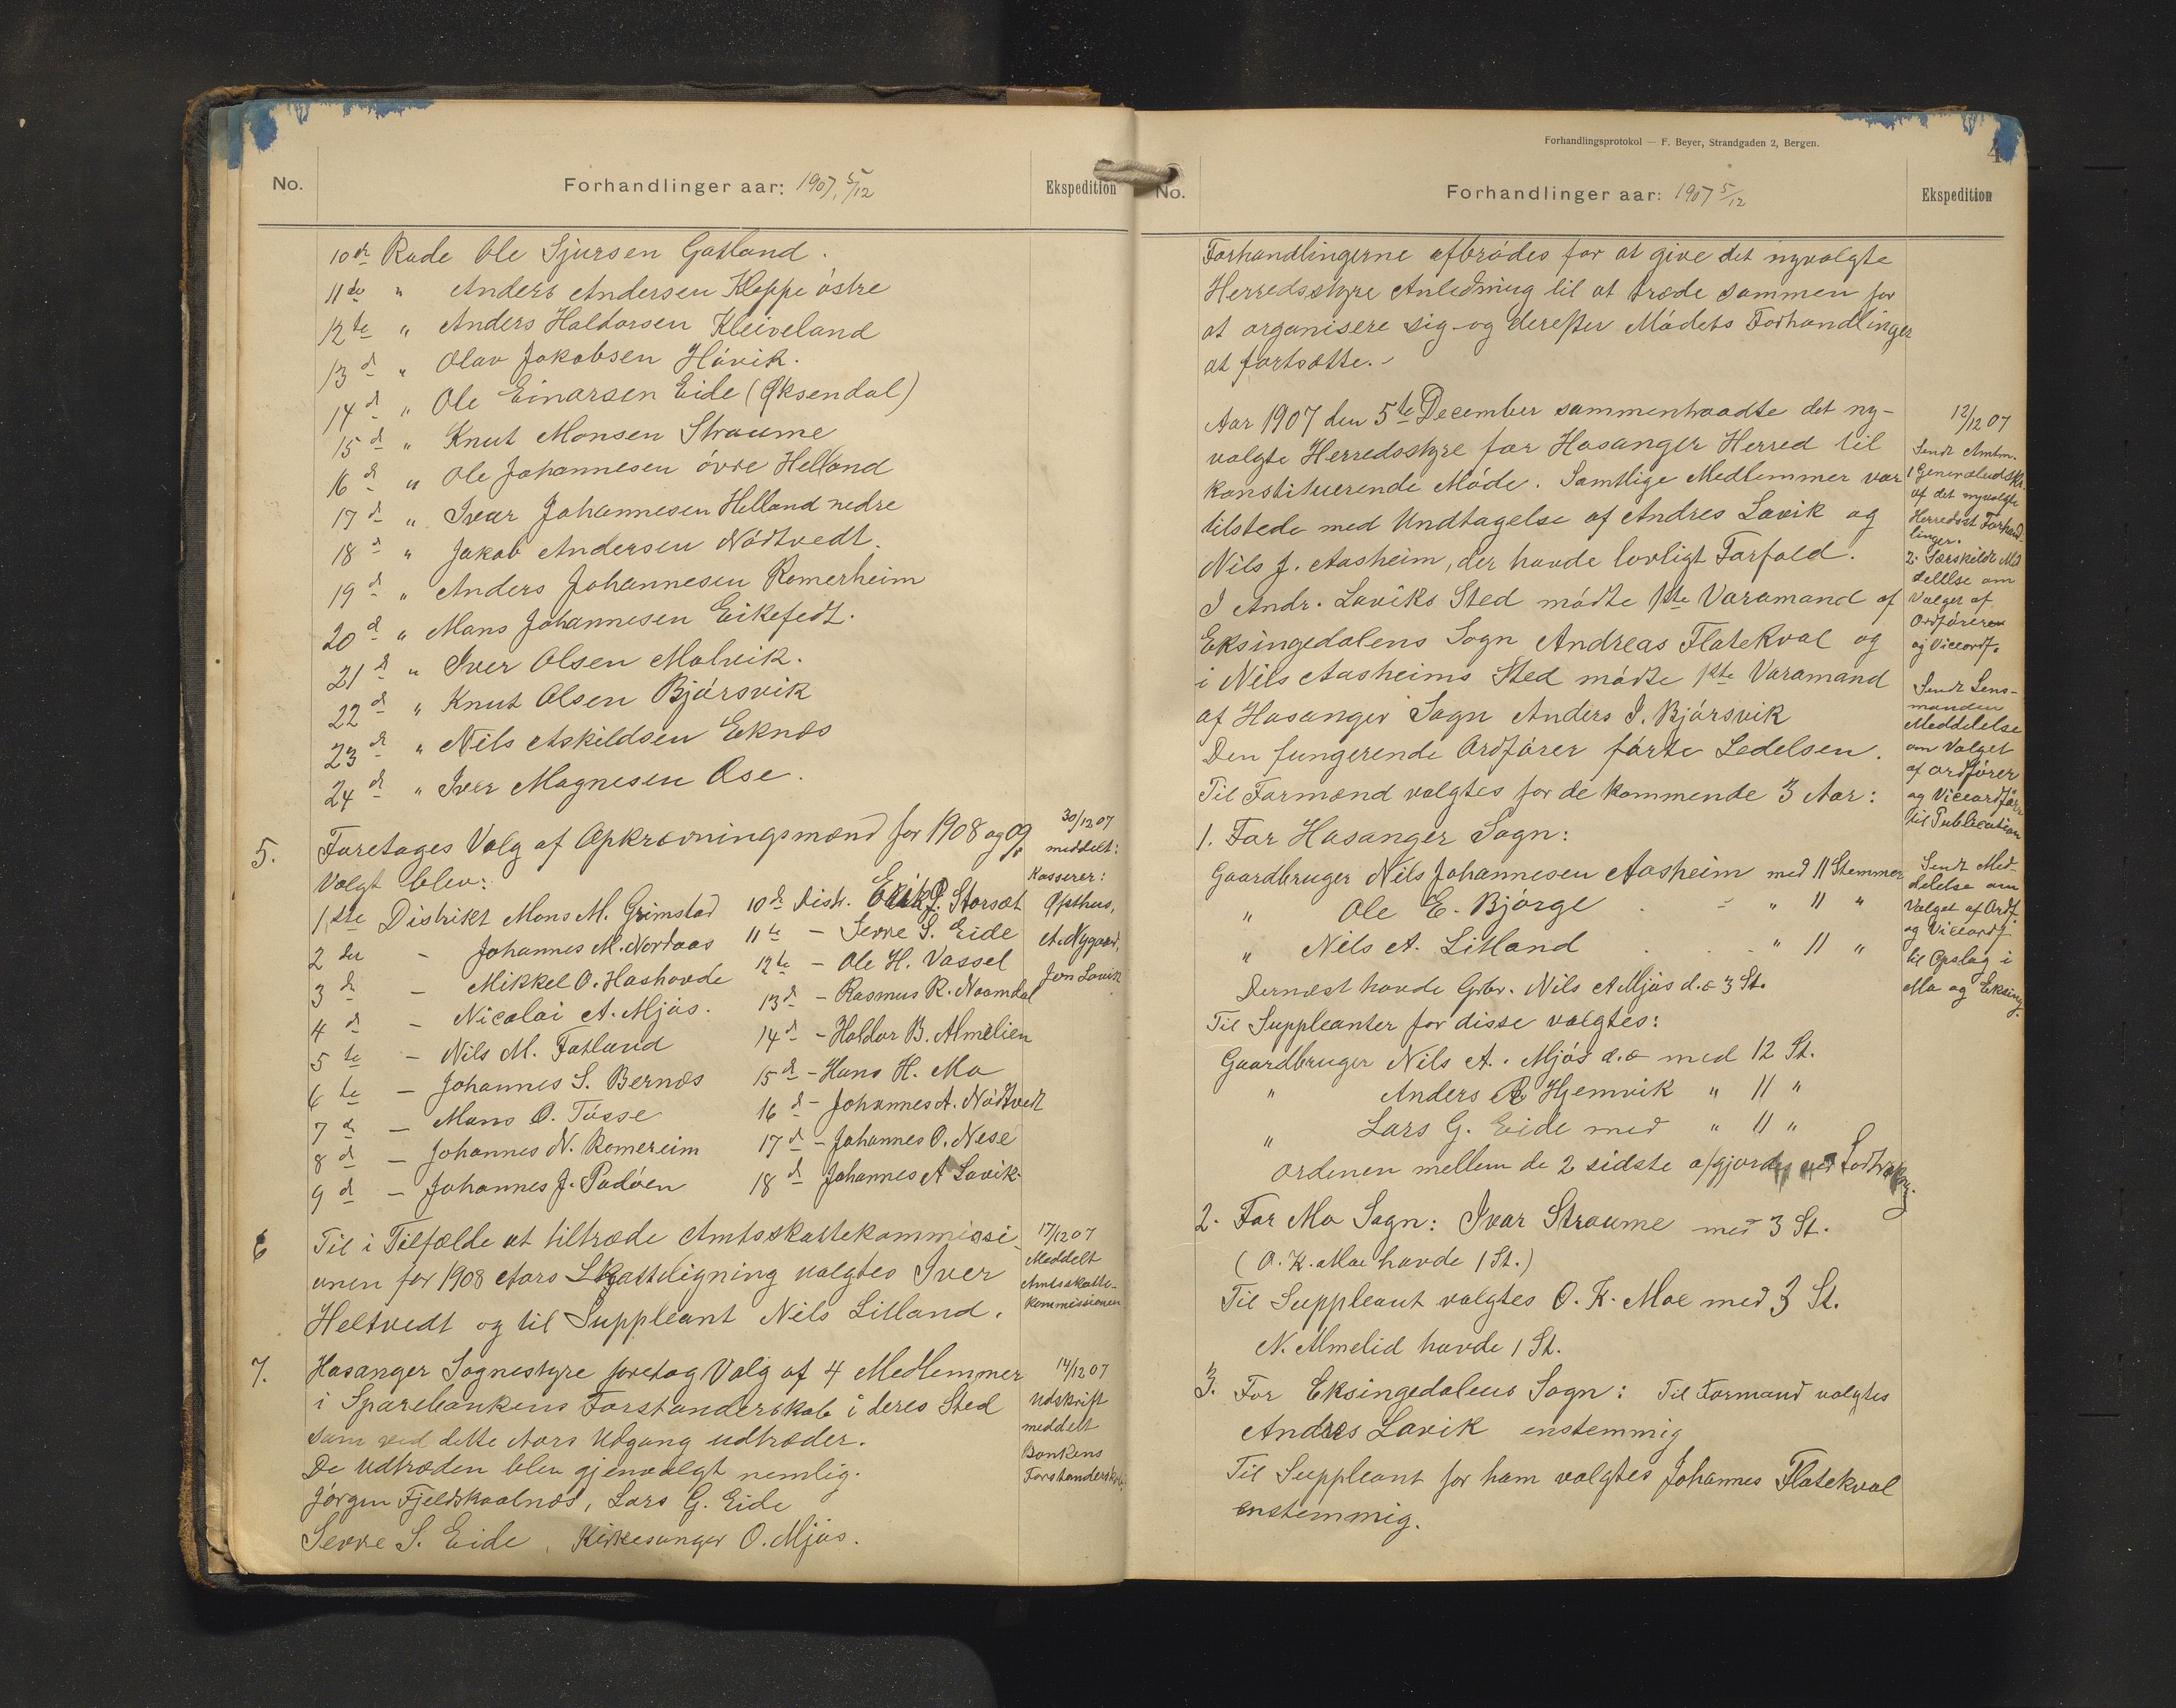 No.
Forhandlinger aar: 1907, 5/12
Ekspedition
10de Rode Ole Sjursen Gatland.
11te " Anders Andersen Kleppe östre
12te " Anders Haldorsen Kleiveland
13d " Olav Jakobsen Hövik.
14d " Ole Einarsen Eide (Øksendal)
15d " Knut Monsen Straume
16d " Ole Johannesen övre Helland
17d " Ivar Johannesen Helland nedre
18d " Jakob Andersen Nödtvedt.
19d " Anders Johannesen Romerheim
20d " Mons Johannesen Eikefedt.
21d " Iver Olsen Molvik.
22d " Knut Olsen Bjørsvik
23d " Nils Askildsen Eknæs
24d " Iver Magnesen Øse.
5. Foretages Valg af Opkrævningsmænd for 1908 og 09.
Valgt blev:
1ste Distrikt Mons M. Grimstad
2den - Johannes M. Nordaas
3di - Mikkel O. Hashovde
4d - Nicolai A. Mjös.
5te - Nils M. Fatland
6te - Johannes S. Bernæs
7d - Mons O. Tösse
8d - Johannes N. Romereim
9d - Johannes J. Padöen
10d Distr. Erik P. Storsæt
11te - Sevre S. Eide
12te - Ole H. Vassel
13d - Rasmus R. Naamdal
14d - Haldor B. Almelien
15d - Hans H. Mo
16d - Johannes A. Nödtvedt
17d - Johannes O. Nese
18d Johannes A Lavik.
30/12 07
meddelt:
Kasserer:
Opthus,
A. Nygaard,
Jon Lavik
6 Til i Tilfælde at tiltræde Amtsskattekommissi-
onen for 1908 Aars Skatteligning valgtes Iver
Heltvedt og til Suppleant Nils Litland.
17/12 07
Meddelt
Amtsskatte-
kommissionen
7. Hosanger Sognestyre foretog Valg af 4 Medlemmer
i Sparebankens Forstanderskab i deres Sted
som ved dette Aars Udgang udtræder.
De Udtræden blev gjenvalgt nemlig.
Jörgen Fjeldskaalnæs, Lars G. Eide
Sevre S. Eide, Kirkesanger O. Mjös.
14/12 07
Udskrift
meddelt
Bankens
Forstandersk.
Forhandlingsprotokol — F. Beyer, Strandgaden 2, Bergen.
4
No.
Forhandlinger aar: 1907 5/12
Ekspedition
Forhandlingerne afbrödes for at give det nyvalgte
Herredsstyre Anledning til at træde sammen for
at organisere sig og derefter Mödets Forhandlinger
at fortsætte.-
Aar 1907 den 5te December sammentraadte det ny-
valgte Herredsstyre for Hosanger Herred til
konstituerende Möde. Samtlige Medlemmer var
tilstede med Undtagelse af Andres Lavik og
Nils J. Aasheim, der havde lovligt Forfald.
I Andr. Laviks Sted mödte 1ste Varamand af
Eksingedalens Sogn Andreas Flatekval og
i Nils Aasheims Sted mödte 1ste Varamand
af Hosanger Sogn Anders I. Bjørsvik
Den fungerende Ordförer förte Ledelsen.
Til Formænd valgtes for de kommende 3 Aar:
1. For Hosanger Sogn:
Gaardbruger Nils Johannesen Aasheim med 11 Stemmer
" Ole E. Bjørge - " 11 "
" Nils A. Litland - " 11 "
Dernæst havde Grbr. Nils A Mjös d.æ 3 St.
Til Suppleanter for disse valgtes:
Gaardbruger Nils A. Mjös d.æ med 12 St.
" Anders R Hjemvik " 11 "
" Lars G. Eide med " 11 "
Ordenen mellem de 2 sidste afgjordes ved Lodtrækning.
2. For Mo Sogn: Ivar Straume med 3 St.
(O. K. Moe havde 1 St.)
Til Suppleant valgtes O. K. Moe med 3 St.
N. Almelid havde 1 St.
3. For Eksingedalens Sogn: Til Formand valgtes
Andres Lavik enstemmig
Til Suppleant for ham valgtes Johannes Flatekval
enstemmig.
12/12 07
Sendt Amtm.
1. Generaludskr.
af det nyvalgte
Herredsst Forhand-
linger.
2. Særskildt Med
delelse om
Valget af
Ordföreren
og Viceordf.
Sendt Lens-
manden
Meddelelse
om Valget
af Ordförer
og Viceordförer
til Publication
Sendt Med-
delelse om
Valget af Ordf.
og Viceordf.
til Opslag i
Mo og Eksing.